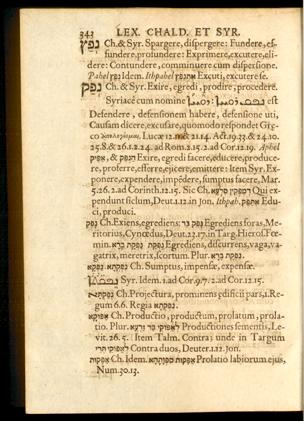 343 LEX. CHALD. ET SYR.
נפץ Ch. & Syr. Spargere, dispergere: Fundere, ef-
fundere, profundere: Exprimere, excutere, eli-
dere: Contundere, comminuere cum dispersione.
Pahel נפץ Idem. Ithpahel Excuti, excutere se.
נפק Ch. & Syr. Exire, egredi, prodire, procedere.
Syriacè cum nomine est
Defendere, defensionem habere, defensione uti,
Causam dicere, excusare, quomodo respondet Græ-
co Lucæ 12.11 & 21.14. Act. 19.33. & 24.10.
25.8. & 26.1.2.24. ad Rom. 2.15. 2. ad Cor. 12.19. Aphel
אפיק & הנפק Exire, egredi facere, educere, produce-
re, proferre, efferre, ejicere, emittere: Item Syr. Ex-
ponere, expendere, impédere, sumptus facere, Mar.
5.26. 2. ad Corinth. 12.15. Sic Ch. Qui ex-
pendunt siclum, Deut. 1.12. in Jon. Ithaph. Edu-
ci, produci.
נפק Ch. Exiens, egrediens: נפק בר Egrediens foras, Me-
ritorius, Cynœdus, Deut. 23.17. in Targ. Hierof. Fœ-
min. נפקת ברא Egrediens, discurrens, vaga, va-
gatrix, meretrix, scortum. Plur. נפקת ברא.
נפקא נפקתא Ch. Sumptus, impensæ, expensæ.
Syr. Idem. 1. ad Cor. 9.7. 2. ad Cor. 12.15.
Ch. Projectura, prominens ędificii pars, 1. Re-
gum 6.6. Regia נפקתא.
אפוקא Ch. Productio, productum, prolatum, prola-
tio. Plur. Productiones sementis, Le-
vit. 26. 5. Item Talm. Contra; unde in Targum
לאפוקי תרי Contra duos, Deuter. 1.12. Jon.
אפקות Ch. Idem. Prolatio labiorum ejus,
Num. 30.13.